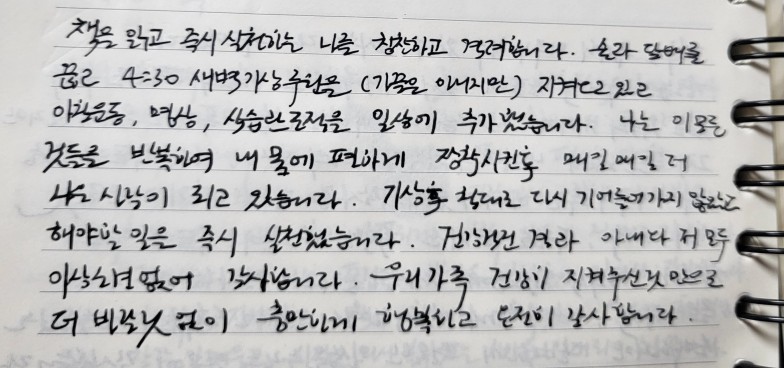 책을 읽고 즉시 실천하는 나를 칭찬하고 격려합니다. 술과 담배를
끊고 4:30 새벽기상루틴을 (가끔은 아니지만) 지켜내고 있고
아침운동, 명상, 식습관조절을 일상에 추가했습니다. 나는 이 모든
것들을 반복하여 내 몸에 편하게 장착시킨후 매일매일 더
나은 시작이 되고 있습니다. 기상후 침대로 다시 기어들어가지 않고
해야할 일을 즉시 실천했습니다. 건강검진 결과 아내와 저 모두
이상소견 없어 감사합니다. 우리가족 건강히 지켜주신것 만으로
더 바랄것 없이 충만하게 행복하고 온전히 감사합니다.